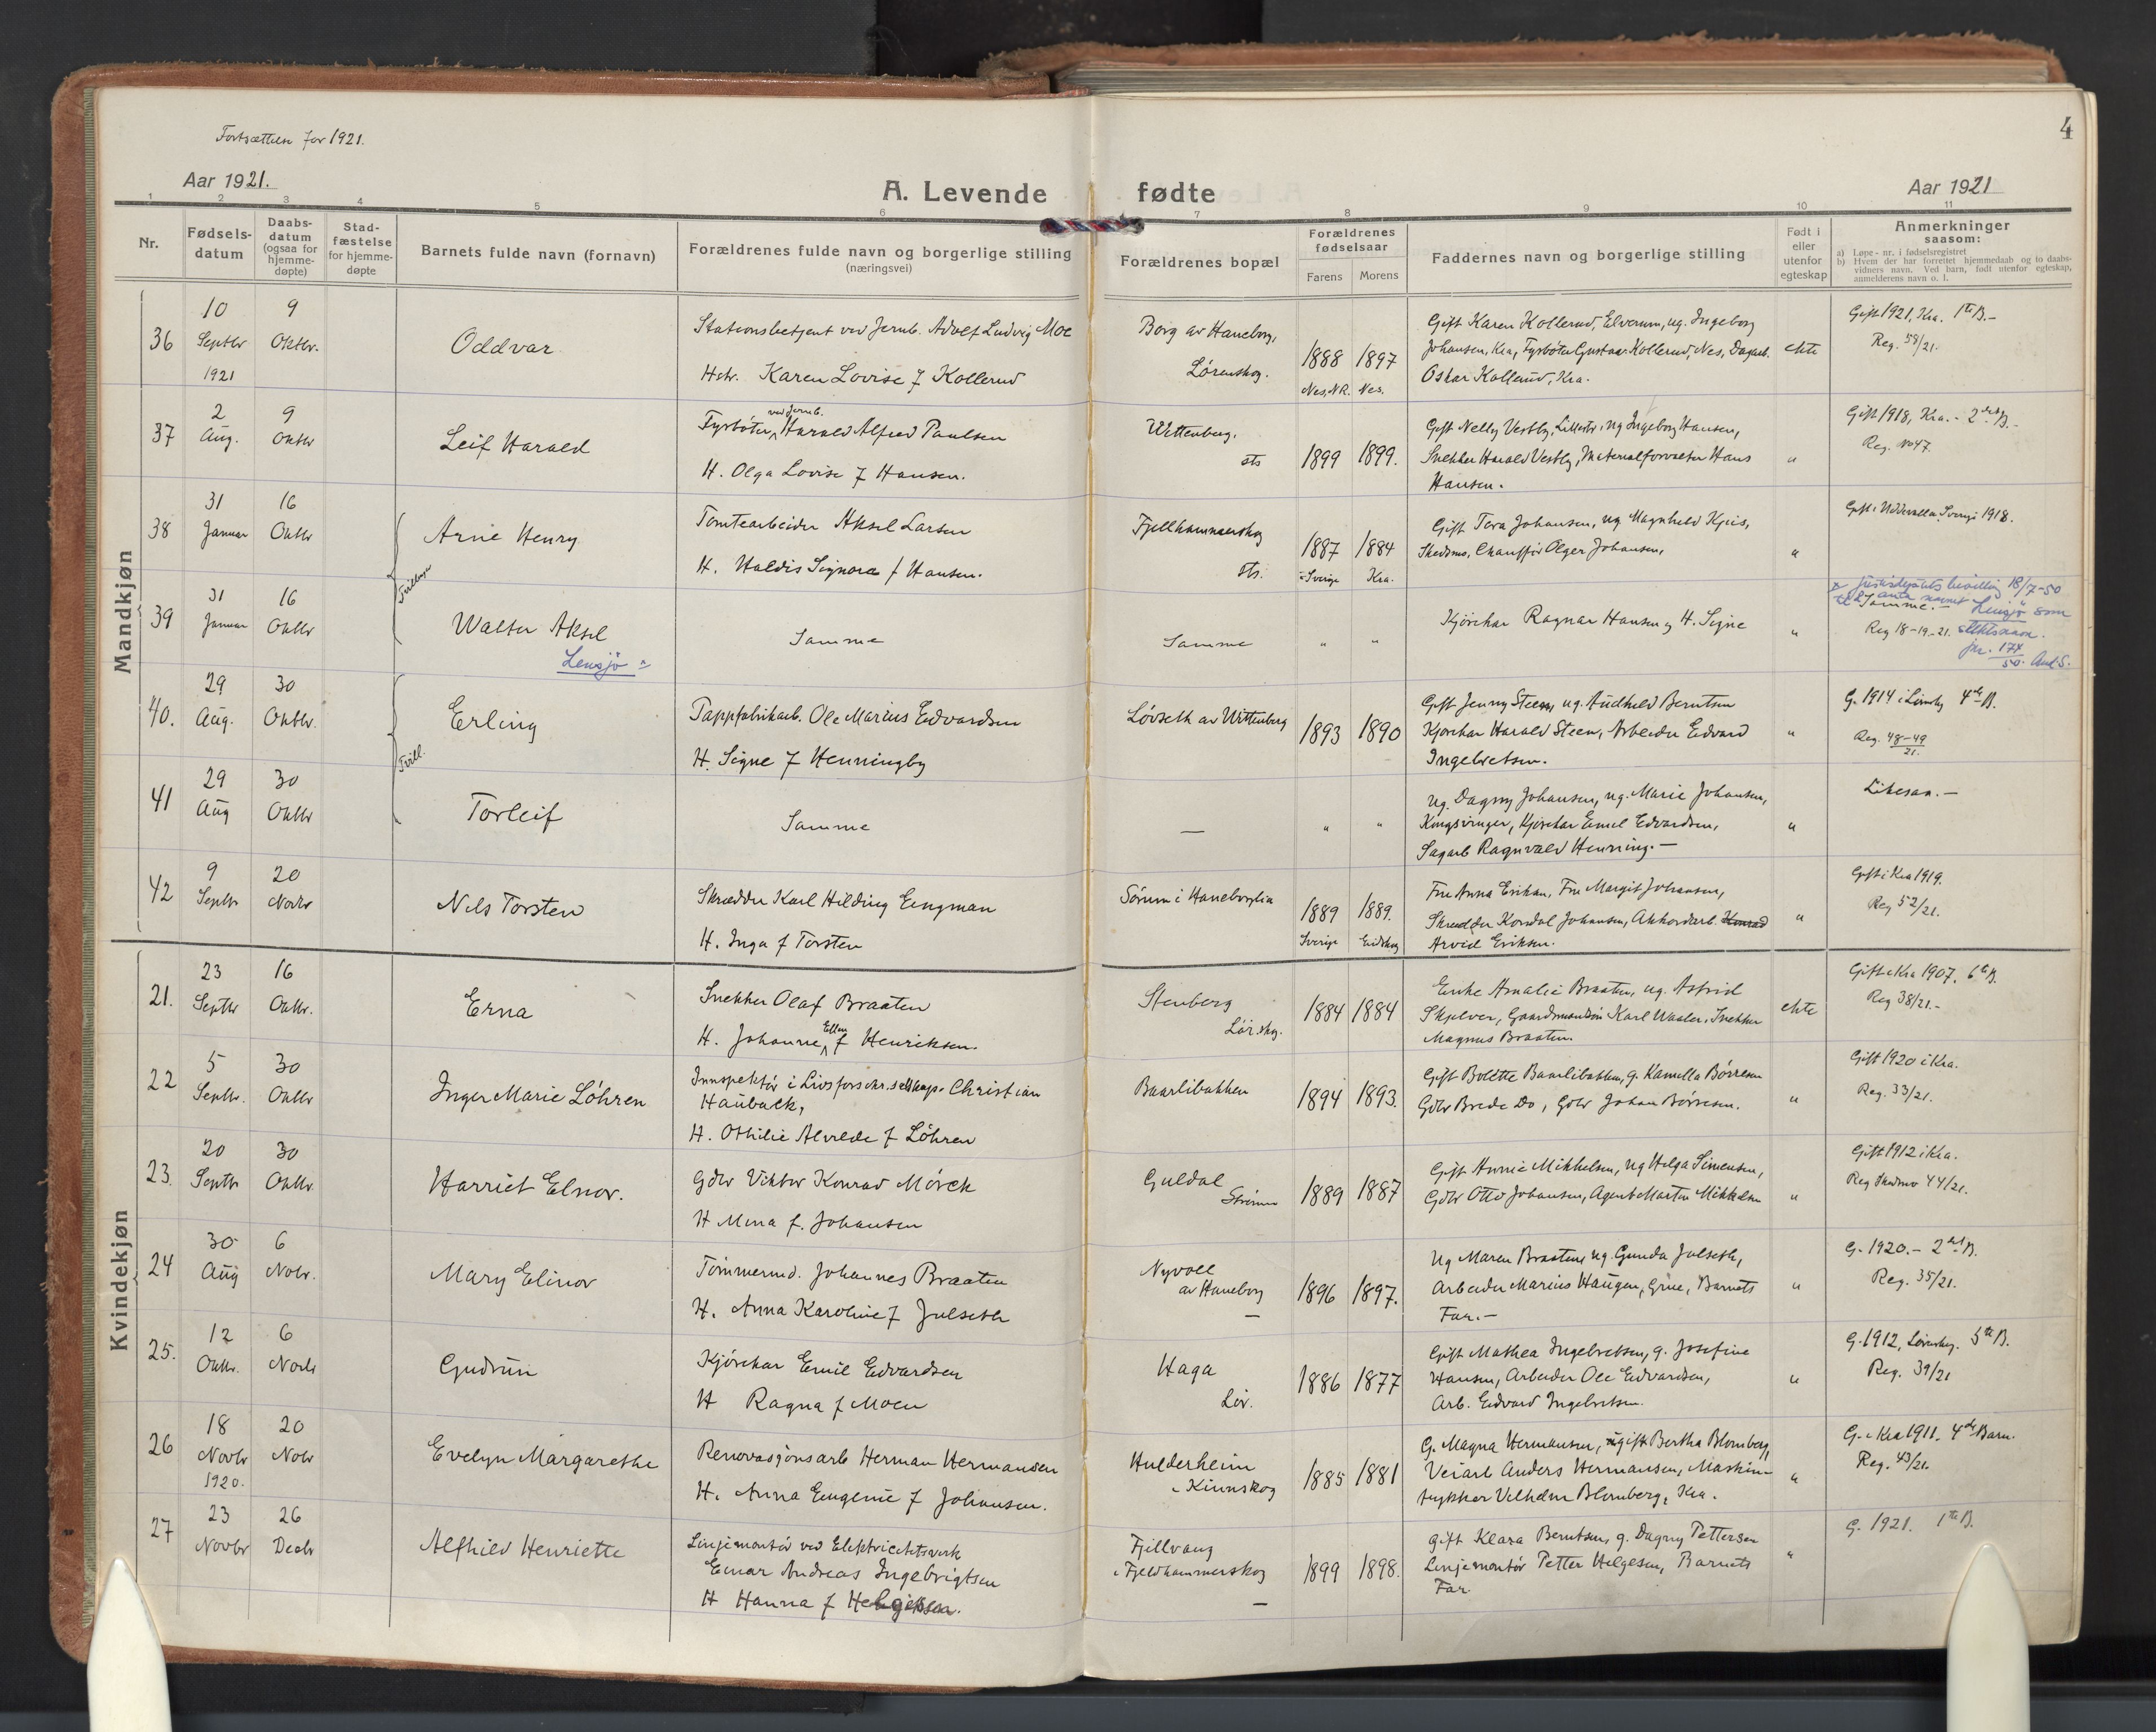 Fortsættelse for 1921.
4
Aar 1921.
A. Levende fødte
Aar 1921
1 2 3 4 5 6 7 8 9 10 11
Nr.
Fødsels-
datum
Daabs-
datum
(ogsaa for
hjemme-
døpte)
Stad-
fæstelse
for hjemme-
døpte
Barnets fulde navn (fornavn)
Forældrenes fulde navn og borgerlige stilling
(næringsvei)
Forældrenes bopæl
Forældrenes
fødselsaar
Farens
Morens
Faddernes navn og borgerlige stilling
Født i
eller
utenfor
egteskap
Anmerkninger
saasom:
a) Løpe-nr. i fødselsregistret
b) Hvem der har forrettet hjemmedaab og to daabs-
vidners navn. Ved barn, født utenfor egteskap,
anmelderens navn o. l.
Mandkjøn
36
10
Septbr
1921
9
Oktbr.
Oddvar
Stationsbetjent ved Jernb. Adolf Ludvig Moe
Hstr. Karen Lovise f Kollerud
Borg av Haneborg,
Lørenskog.
1888 1897
Nes, N.R. Nes.
Gift Karen Kollerud, Elverum, ug. Ingeborg
Johansen, Kra, Fyrbøter Gustav Kollerud, Nes, Dagarb.
Oskar Kollerud, Kra.
ekte
Gift 1921, Kra. 1te B.-
Reg. 58/21.
37
2
Aug.
9
Oktbr
Leif Harald
Fyrbøter ved Jernb. Harald Alfred Paulsen
H. Olga Lovise f Hansen.
Wittenberg,
sts
1899 1899.
Gift Nelly Vestby, Lillestr, ug Ingeborg Hansen,
Snekker Harald Vestby, Materialforvalter Hans
Hansen.
"
Gift 1918, Kra. - 2det B.-
Reg. No 47.
38
31
Januar
16
Oktbr
Tvillinger
Arne Henry
Tomtearbeider Aksel Larsen
H. Haldis Signora f Hansen.
Fjellhammerskog
sts.
1887 1884
Sverige Kra.
Gift Tora Johansen, ug Magnhild
Skedsmo, Chauffør Olger Johansen,
"
Gift i Uddevalla Sverige 1918.
39
31
Januar
16
Oktbr
Walter Aksel
Lensjö
Samme
Samme
" "
Kjørekar Ragnar Hansen og H. Signe
"
bevilling 18/7-50
til å anta navnet Lensjö som
slektsnavn.
jnr. 174/50. Aud S.
Samme.-
Reg 18-19-21.
40.
29
Aug.
30
Oktbr.
Tvill.
Erling
Pappfabrikarb. Ole Marius Edvardsen
H. Signe f Henningby
Løvseth av Wittenberg
1893 1890
Gift Jenny Steen, ug. Audhild Berntsen
Kjørekar Harald Steen, Arbeider Edvard
Ingebretsen.
"
G. 1914 i Lørnskg 4de B.
Reg. 48-49/21.
41
29
Aug
30
Oktbr
Torleif
Samme
—
" "
ug. Dagny Johansen, ug. Marie Johansen,
Kongsvinger, Kjørekar Emil Edvardsen,
Sagarb Ragnvald Henning.-
"
Likesaa.-
42
9
Septbr
20
Novbr
Nils Torsten
Skrædder Karl Hilding Engman
H. Inga f Torsten
Sørum i Haneborglia
1889 1889.
Sverige Eidskog
Fru Anna Eriksen, Fru Margit Johansen,
Skrædder Kordal Johansen, Akkordarb. Konrad
Arvid Eriksen.
"
Gift i Kra 1919.
Reg 52/21.
Kvindekjøn
21.
23
Septbr
16
Oktbr.
Erna
Snekker Olaf Braaten
H. Johanne Ellen f Henriksen.
Stenberg
Lørskg.
1884 1884
Enke Amalie Braaten, ug. Astrid
Skjelver, Gaardmandsøn Karl Waaler, Snekker
Magnus Braaten.
ekte
Gift i Kra 1907. 6te B.
Reg 38/21.-
22
5
Septbr.
30
Oktbr
Inger Marie Löhren
Innspektör i Livsforsikr.selskap. Christian
Hauback,
H. Othilie Alvilde f Löhren
Baarlibakken
1894 1893.
Gift Bolette Baarlibakken, g. Kamilla Börresen
Gdbr Brede Do, Gdbr Johan Børresen.
"
Gift 1920 i Kra.
Reg. 33/21.
23.
20
Septbr
30
Oktbr
Harriet Elnor.
Gdbr Viktor Konrad Mörck
H Mina f. Johansen
Guldal
Strømm
1889 1887
Gift Annie Mikkelsen, ug Helga Simensen,
Gdbr Otto Johansen, Agent Martin Mikkelsen
"
Gift 1912 i Kra.
Reg Skedsmo 44/21.
24
30
Aug
6
Novbr.
Mary Elinor
Tömmermd. Johannes Braaten
H. Anna Karoline f Julseth
Nyvoll
av Haneborg
—
1896 1897.
Ug Maren Braaten, ug. Gunda Julseth,
Arbeider Marius Haugen, Grue, Barnets
Far.-
"
G. 1920.- 2det B.
Reg. 35/21.
25.
12
Oktbr.
6
Novbr
Gudrun
Kjörekar Emil Edvardsen
H Ragna f Moen
Haga
Lør.
1886 1877
Gift Mathea Ingebretsen, g. Josefine
Hansen, Arbeider Ole Edvardsen,
Arb. Edvard Ingebretsen.
"
G. 1912, Lørnskg. 5te B.
Reg. 39/21
26
18
Novbr
1920.
20
Nobr
Evelyn Margarethe
Renovasjonsarb Herman Hermansen
H. Anna Eugenie f Johansen.
Hulderheim
i Kinnskog
1885 1881
G. Magna Hermansen, ugift Bertha Blomberg,
Veiarb Anders Hermansen, Maskin-
trykker Vilhelm Blomberg, Kra.
"
G. i Kra 1911. 4de Barn.
Reg. 43/21.
27
23
Novbr
26
Decbr
Alfhild Henriette
Linjemontör ved Elektricitetsverk
Einar Andreas Ingebrigtsen
H Hanna f Helgesen.
Fjellvang
i Fjeldhammerskog
—
1899 1898.
Gift Klara Berntsen, g. Dagny Pettersen
Linjemontör Petter Helgesen, Barnets
Far.
"
G. 1921. 1te B.